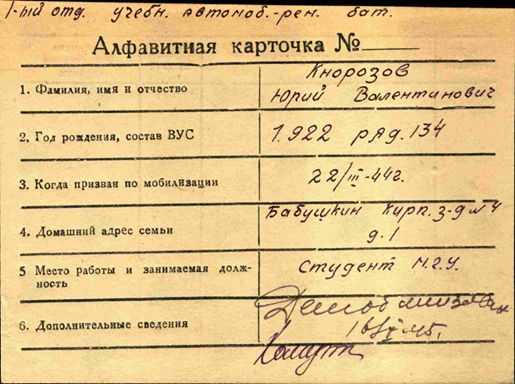 1-ый отд. учебн. автомоб.-рем. бат.
Алфавитная карточка №
1. Фамилия, имя и отчество
Кнорозов
Юрий Валентинович
2. Год рождения, состав ВУС
1.922 ряд. 134
3. Когда призван по мобилизации
22/III-44г.
4. Домашний адрес семьи
Бабушкин кирп. з-д №4
д. 1
5 Место работы и занимаемая долж-
ность
студент М.Г.У.
6. Дополнительные сведения
Демобилизован